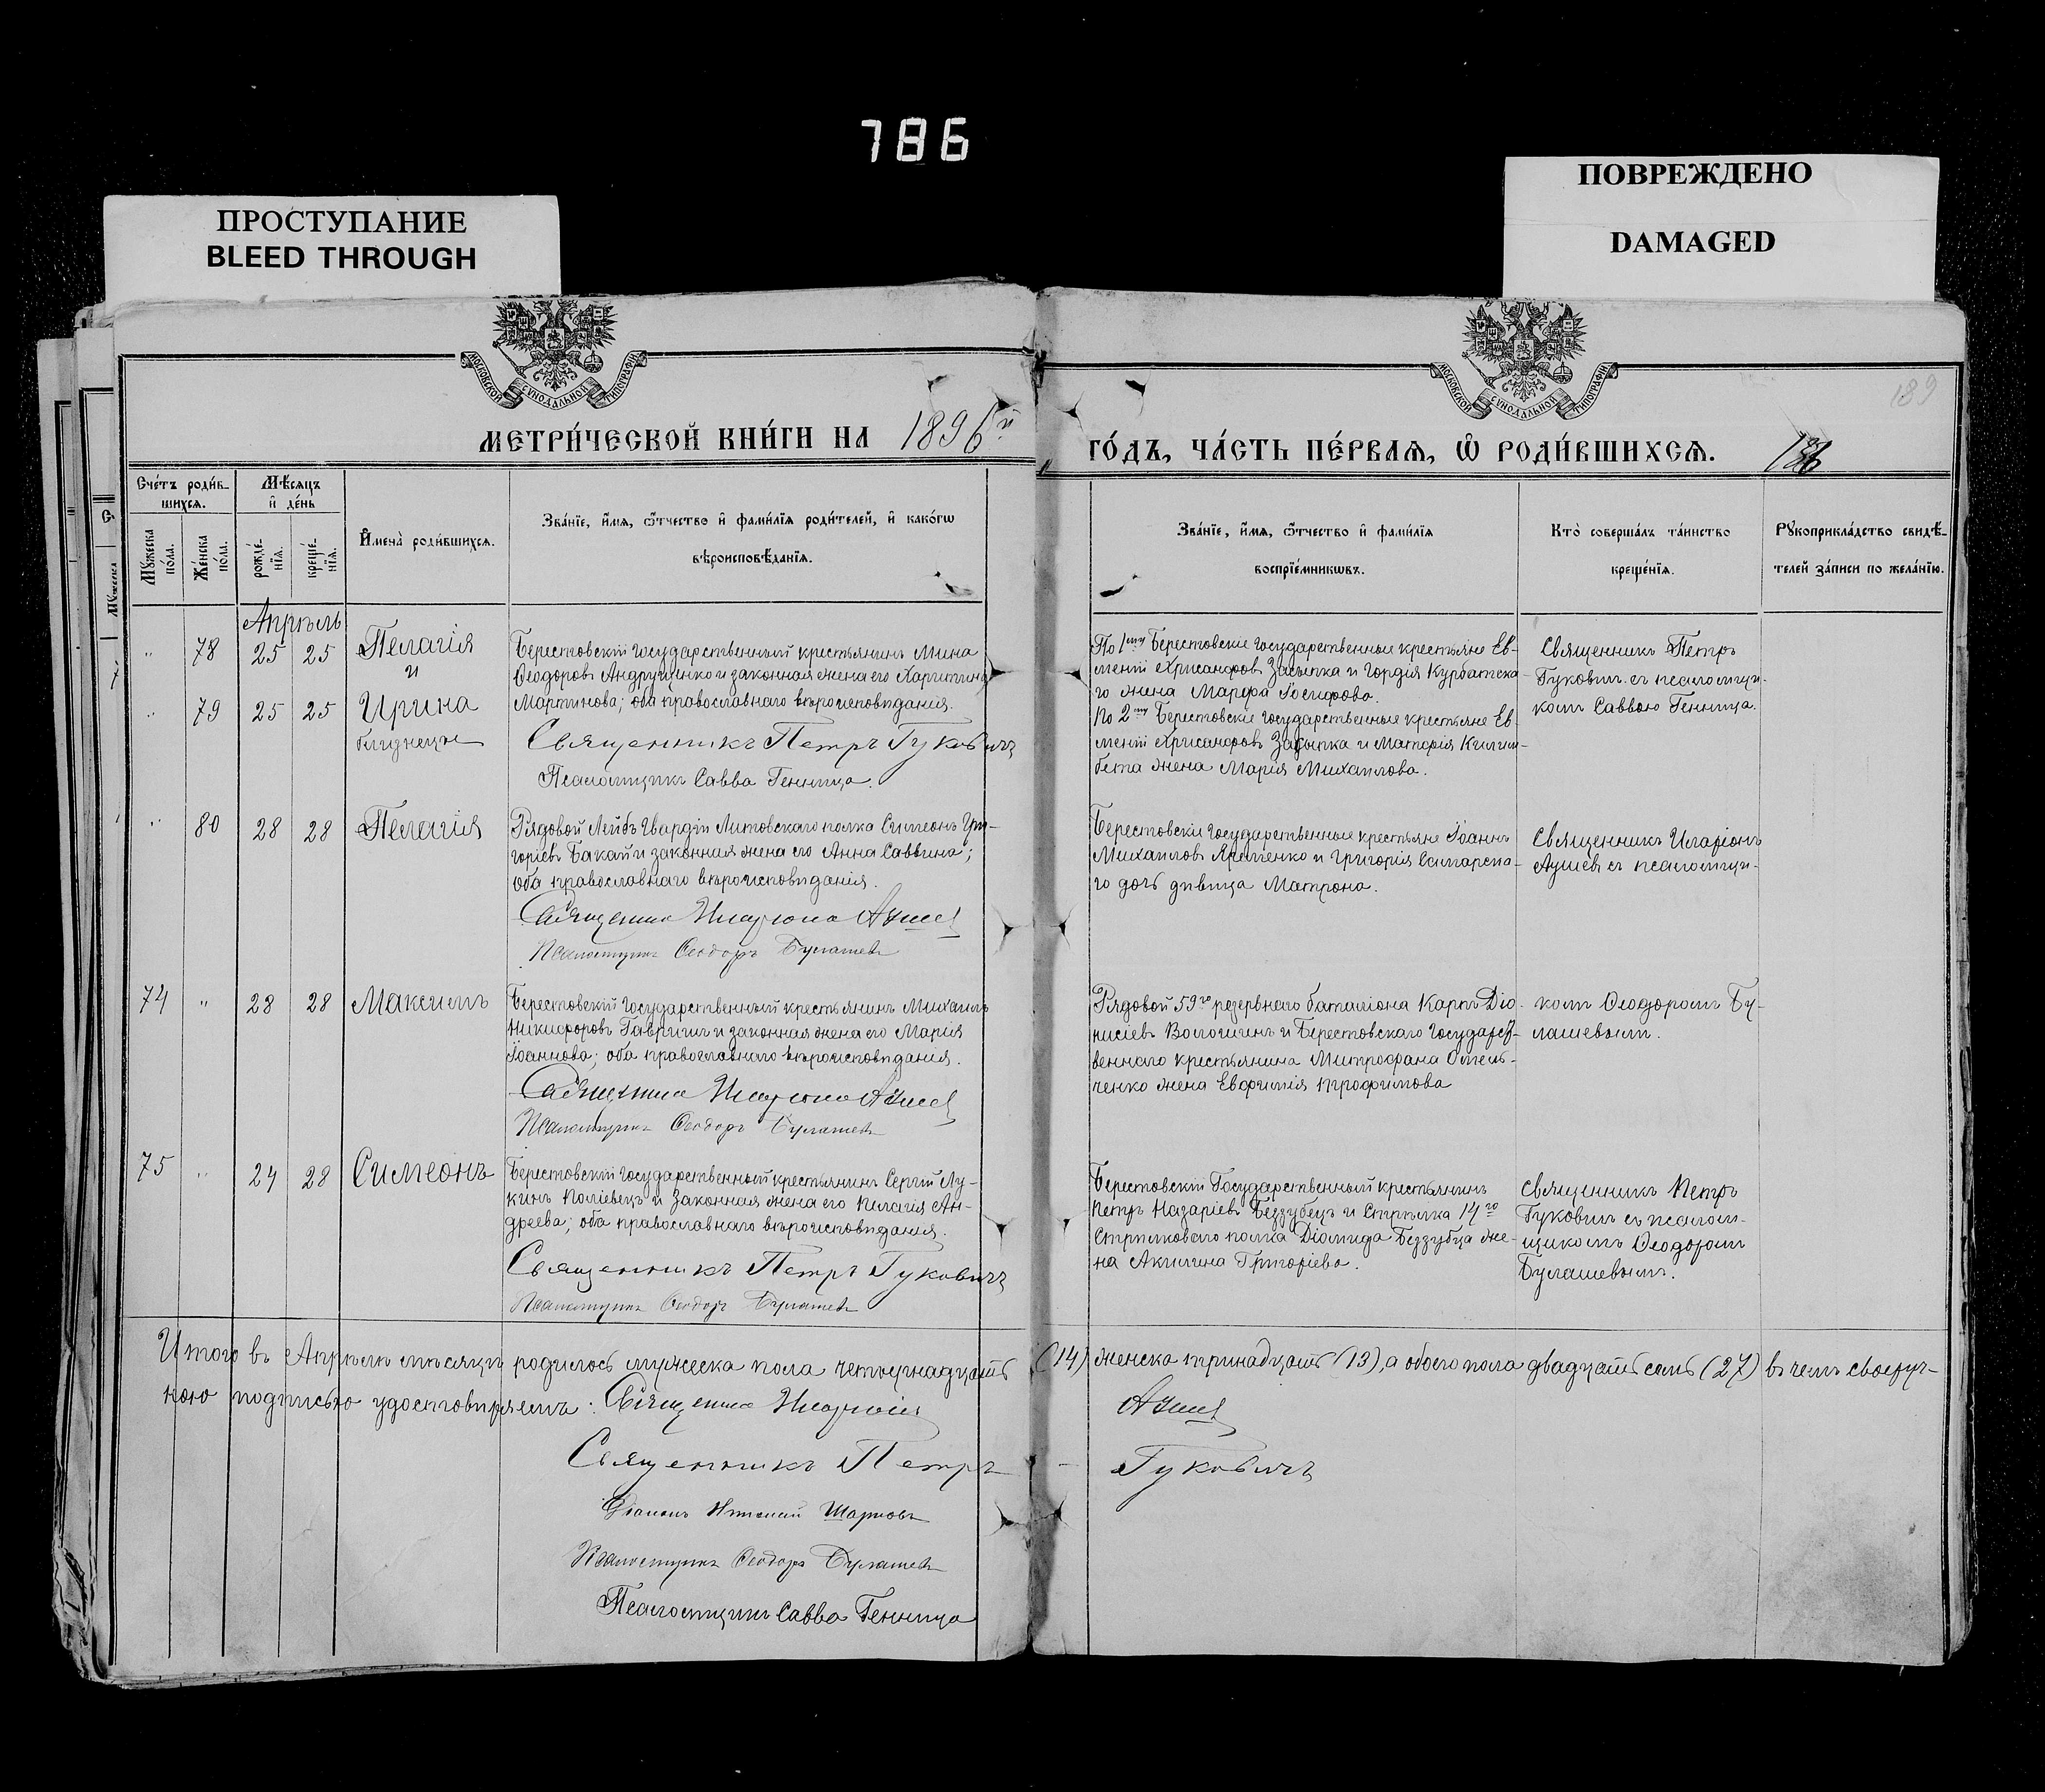 786
ПРОСТУПАНИЕ
BLEED THROUGH
ПОВРЕЖДЕНО
DAMAGED
МОСКОВСКОЙ СѴНОДАЛЬНОЙ ТИПОГРАФІИ
МОСКОВСКОЙ СѴНОДАЛЬНОЙ ТИПОГРАФІИ
189
МЕТРИ́ЧЕСКОЙ КНИ́ГИ НА 1896й
ГО́ДЪ, ЧА́СТЬ ПЕ́РВАѦ, Ѿ РОДИ́ВШИХСѦ. 186
Сче́тъ роди́в-
шихсѧ.
Мꙋжеска по́ла.
Же́нска по́ла.
Мѣ́сѧцъ
и҆ де́нь
рожде́-
нїѧ.
креще́-
нїѧ.
И҆мена̀ роди́вшихсѧ.
Зва́нїе, и҆́мѧ, ѻ҆́тчество и҆ фами́лїѧ роди́телей, и҆ како́гѡ
вѣроисповѣ́данїѧ.
Зва́нїе, и҆́мѧ, ѻ҆́тчество и҆ фами́лїѧ
воспрїе́мникѡвъ.
Кто̀ соверша́лъ та́инство
креще́нїѧ.
Рꙋкоприкла́дство свидѣ́-
телей за́писи по жела́нїю.
Апрѣль
" 78 25 25 Пелагія
и
" 79 25 25 Ирина
близнецы
Берестовскій государственный крестьянинъ Мина
Ѳеодоровъ Андрущенко и законная жена его Харитина
Мартинова; оба православнаго вѣроисповѣданія.
Священникъ Петръ Гуковичъ
Псаломщикъ Савва Генница.
По 1му Берестовскіе государственные крестьяне Ев-
меній Хрисанфовъ Засыпка и Гордія Курбатска-
го жена Марфа Іосифова.
По 2му Берестовскіе государственные крестьяне Ев-
меній Хрисанфовъ Засыпка и
жена Марія Михаилова.
Священникъ Петръ
Гуковичъ съ псаломщи-
комъ Саввою Генница.
" 80 28 28 Пелагія
Рядовой Лейбъ Гвардіи Литовскаго полка Симеонъ Гри-
горіевъ Бакай и законная жена его Анна Саввина;
оба православнаго вѣроисповѣданія.
Священникъ Иларіонъ
Псаломщикъ Ѳеодоръ Булашевъ
Берестовскіе государственные крестьяне Іоаннъ
Михаиловъ Яременко и Григорія Самарска-
го дочь дѣвица Матрона.
Священникъ Иларіонъ
съ псаломщи-
74 " 28 28 Максимъ
Берестовскій государственный крестьянинъ Михаилъ
Никифоровъ Гавришъ и законная жена его Марія
Іоаннова; оба православнаго вѣроисповѣданія.
Священникъ Иларіонъ
Псаломщикъ Ѳеодоръ Булашевъ
Рядовой 59го резервнаго баталіона Карпъ Діо-
нисіевъ Волошинъ и Берестовскаго государст-
веннаго крестьянина Митрофана Омель-
ченко жена Евфимія Трофимова
комъ Ѳеодоромъ Бу-
лашевымъ.
75 " 24 28 Симеонъ
Берестовскій государственный крестьянинъ Сергій Лу-
кинъ Поліевецъ и законная жена его Пелагія Ан-
дреева; оба православнаго вѣроисповѣданія.
Священникъ Петръ Гуковичъ
Псаломщикъ Ѳеодоръ Булашевъ
Берестовскій Государственный крестьянинъ
Петръ Назаріевъ Беззубецъ и Стрѣлка 14го
Стрѣлковаго полка Діомида Беззубца же-
на Акилина Григоріева.
Священникъ Петръ
Гуковичъ съ псалом-
щикомъ Ѳеодоромъ
Булашевымъ.
Итого въ Апрѣлѣ мѣсяцѣ родилось мужеска пола четырнадцать (14) женска тринадцать (13), а обоего пола двадцать семь (27) въ чемъ своеруч-
ною подписью удостовѣряемъ: Священникъ Иларіонъ
Священникъ Петръ Гуковичъ
Псаломщикъ Ѳеодоръ Булашевъ
Псаломщикъ Савва Генница